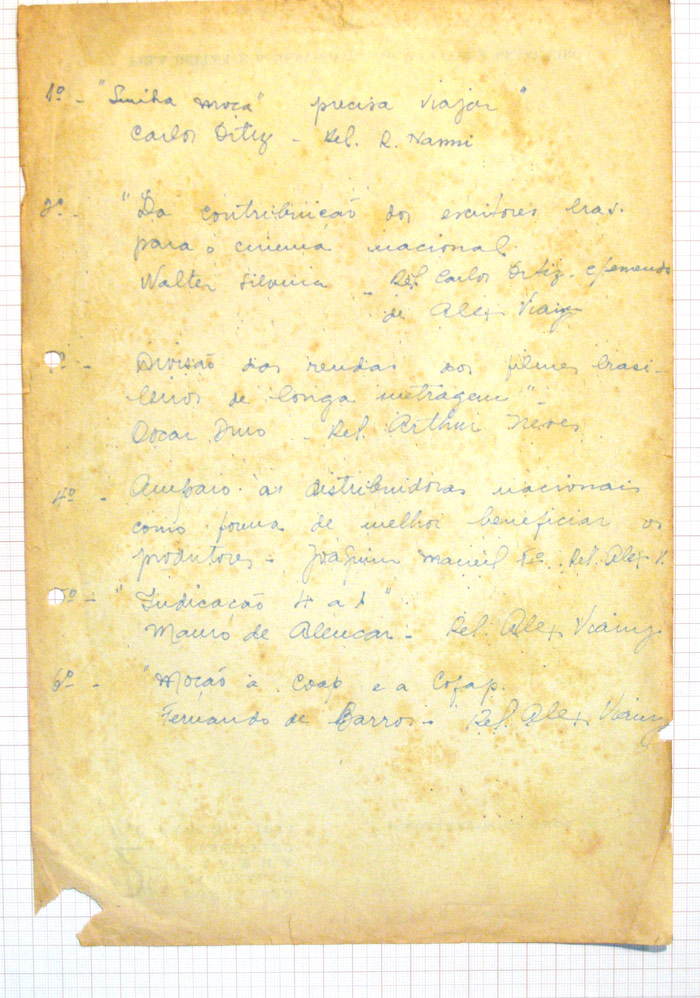 1º - "Sinha moça" precisa viajar"
Carlos Ortiz - Rel. R. Nanni
2º - "Da contribuição dos escritores bras.
para o cinema nacional.
Walter Silveira - Rel. Carlos Ortiz. c/emenda
de Alex Viany
3º - Divisão das rendas dos filmes brasi-
leiros de longa metragem" -
Oscar - Rel. Arthur Neves
4º - Amparo às distribuidoras nacionais
como forma de melhor beneficiar os
produtores - Joaquim Manuel Rel. Alex V.
5º - "Indicação 4 a 1"
Mauro de Alencar - Rel. Alex Viany
6º - "Moção à Coap e a Cofap.
Fernando de Barros - Rel. Alex Viany